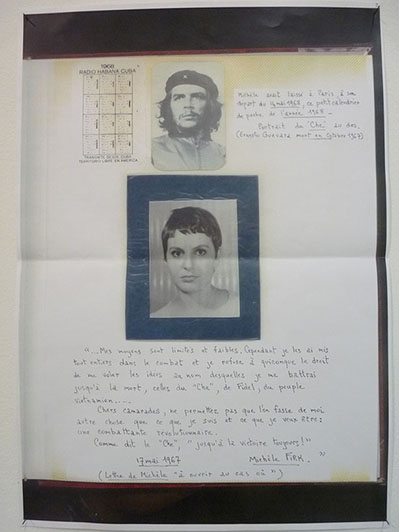 1968
RADIO HABANA CUBA
TRANSMITE DESDE CUBA
TERRITORIO LIBRE EN AMERICA
Michèle avait laissé à Paris, à son
départ du 14 mai 1968, ce petit calendrier
de poche de l'année 1968 -
Portrait du "Che" au dos.
(Ernesto Guevara mort en Octobre 1967)
"....Mes moyens sont limités et faibles. Cependant je les ai mis
tout entiers dans le combat et je refuse à quiconque le droit
de me voler les idées au nom desquelles je me battrai
jusqu'à la mort, celles du "Che", de Fidel, du peuple
vietnamien.....
Chers camarades, ne permettez pas que l'on fasse de moi
autre chose que ce que je suis et ce que je veux être:
une combattante révolutionnaire.
Comme dit le "Che", "jusqu'à la victoire toujours!"
17 mai 1967 Michèle FIRK "
(Lettre de Michèle "à ouvrir au cas où")